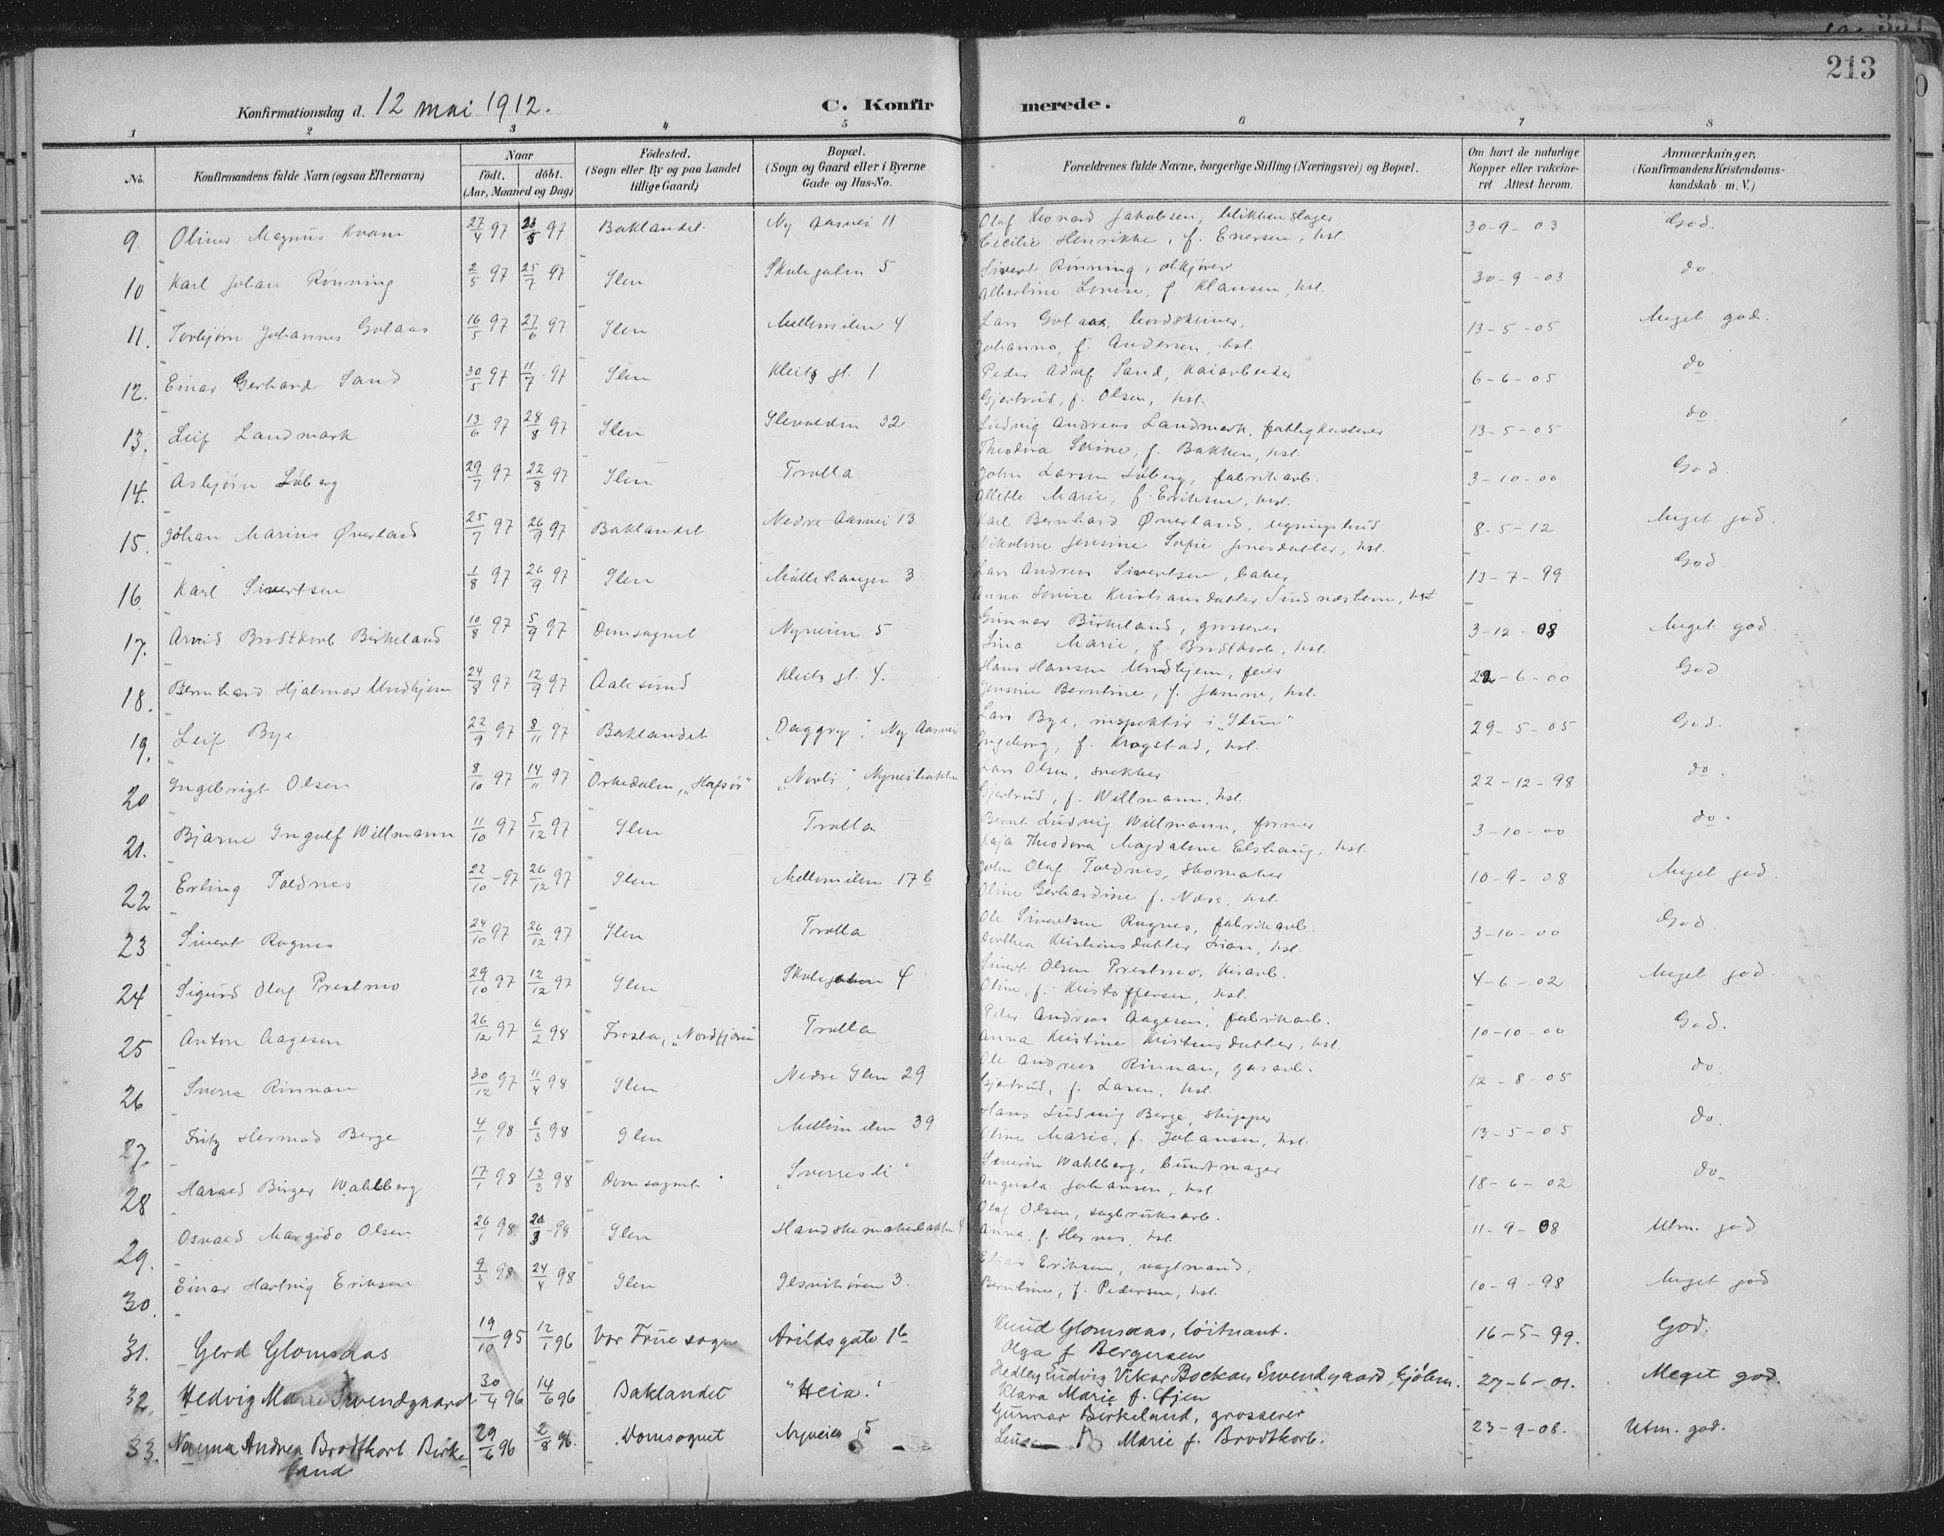 213
Konfirmationsdag d. 12 mai 1912. C. Konfirmerede.
1 2 3 4 5 6 7 8
No. Konfirmandens fulde Navn (ogsaa Efternavn) Naar født. døbt. (Aar, Maaned og Dag) Fødested. (Sogn eller By og paa Landet tillige Gaard) Bopæl. (Sogn og Gaard eller i Byerne Gade og Hus-No. Forældrenes fulde Navne, borgerlige Stilling (Næringsvei) og Bopæl. Om havt de naturlige Kopper eller vakcineret. Attest herom. Anmærkninger. (Konfirmandens Kristendomskundskab m. V.)
9. Oliver Magnus Kvam 27/4 97 23/5 97 Baklandet Ny Aasvei 11 Olaf Leonard Jakobsen, blikkenslager 30-9-03 God.
Cecilie Henrikke, f. Enersen, hst.
10 Karl Johan Rønning 2/5 97 25/7 97 Ilen Skolegaten 5 Sivert Rønning, ølkjører 30-9-03 do.
Albertine Lovise, f. Klausen, hst.
11. Torbjørn Johannes Gotaas 16/5 97 27/6 97 Ilen Mellemilen 4 Lars Gotaas, 13-5-05 Meget god.
Johanna, f. Andersen, hst.
12. Einar Gerhard Sand 30/5 97 11/7 97 Ilen Kleits gt. 1 Peder Adolf Sand, Kaiarbeider 6-6-05 do
Gjertrud, f. Olsen, hst.
13. Leif Landmark 13/6 97 28/8 97 Ilen Ilevolden 32 Ludvig Andreas Landmark, fattigkasserer 13-5-05 do
Theodora Serine, f. Bakken, hst.
14. Asbjørn Løberg 29/7 97 22/8 97 Ilen Trolla John Larsen Løberg, fabrikarb. 3-10-00 God.
Allette Marie, f. Eriksen, hst.
15. Johan Marius Øverland 25/7 97 26/9 97 Baklandet Nedre Aasvei 13 Karl Bernhard Øverland, bygningsbud 8-5-12 Meget god.
Nikoline Jensine Sofie Jensdatter, hst.
16. Karl Sivertsen 1/8 97 26/9 97 Ilen Møllehaugen 3 Lars Andreas Sivertsen, baker 13-7-99 God
Anna Lovise Kristiansdatter Sundnæslem, hst
17. Arvid Brodtkorb Birkeland 10/8 97 5/9 97 Domsognet Nyveien 5 Gunnar Birkeland, grosserer 3-12-08 Meget god.
Lina Marie, f. Brodtkorb, hst.
18. Bernhard Hjalmar Undhjem 24/8 97 12/9 97 Aalesund Kleits gt. 4. Hans Hansen Undhjem, feier 22-6-00 God
Jensine Berntine, f. Jamne, hst.
19. Leif Bye 22/9 97 8/11 97 Baklandet „Daggry“, Ny Aasvei Lars Bye, inspektør i „Idun“ 29-5-05 God.
Ingeborg, f. Krogstad, hst.
20 Ingebrigt Olsen 8/10 97 14/11 97 Orkedalen, „Hofsøi“ „Nordli“, Nyveisbakken Lars Olsen, snekker 22-12-98 do.
Gjertrud, f. Willmann, hst.
21. Bjarne Ingolf Willmann 11/10 97 5/12 97 Ilen Trolla Bernt Ludvig Willmann, former 3-10-00 do.
Kaja Theodora Magdalene Elshaug, hst.
22 Erling Toldnes 22/10 -97 26/12 97 Ilen Mellemilen 17b John Olaf Toldnes, skomaker 10-9-08 Meget god.
Oline Gerhardine f. Næss, hst.
23 Sivert Rognes 24/10 97 26/12 97 Ilen Trolla Ole Sivertsen Rognes, fabrikarb. 3-10-00 God
Dorthea Kristensdatter Svean, hst.
24 Sigurd Olaf Prestmo 29/10 97 12/12 97 Ilen Skolegaten 4 Sivert Olsen Prestmo, 4-6-02 Meget god.
Oline, f. Kristoffersen, hst.
25 Anton Aagesen 26/12 97 6/2 98 Frosta, „Nordfjæren Trolla Peter Andreas Aagesen, fabrikarb. 10-10-00 God.
Anna Kristine Kristensdatter, hst.
26 Sverre Rinnan 30/12 97 11/4 98 Ilen Nedre Ilen 29 Ole Andreas Rinnan, gasarb. 12-8-05 do.
Gjertrud, f. Larsen, hst.
27. Fritz Hermod Berge 4/1 98 6/3 98 Ilen Mellemilen 39 Hans Ludvig Berge, skipper 13-5-05 do.
Oline Marie, f. Johansen, hst.
28 Harald Birger Wahlberg 17/1 98 13/3 98 Domsognet „Sverresli“ Severin Wahlberg, buntmager 18-6-02 do
Augusta Johansen, hst.
29. Osvald Margido Olsen 26/1 98 20/3 -98 Ilen Handskemakerbakken 4 Olaf Olsen, sagbruksarb. 11-9-08 Utm. god
Anna, f. Hernes, hst.
30. Einar Hartvig Eriksen 9/3 98 24/4 98 Ilen Ilsvikøren 3. Elias Eriksen, vagtmand, 10-9-98 Meget god
Berntine, f. Pedersen, hst.
31. Gerd Glomsaas 19/10 95 12/1 96 Vor Frue sogn Arildsgate 1b Knud Glomsaas, løitnant. 16-5-99. God.
Olga f Bergersen
32. Hedvig Marie Svendgaard 30/4 96 14/6 96 Baklandet "Heia." Hedley Ludvig Vikar Svendgaard, 27-6-01. Meget god.
Klara Marie f. Øien
33. Nanna Andrea Brodtkorb Birke- 29/6 96 2/8 96. Domsognet Nyveien 5 Gunnar Birkeland, grosserer 23-9-08. Utm. god.
land Marie f. Brodtkorb.